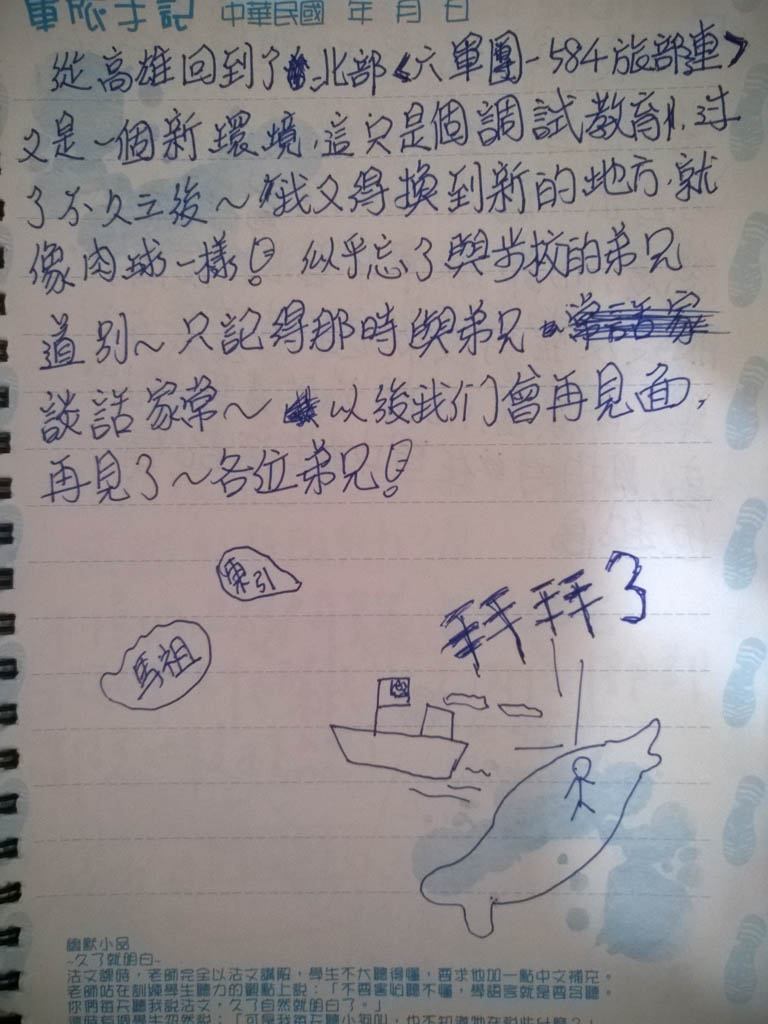 軍旅手記 中華民國 年 月 日
從高雄回到了北部《六軍團-584旅部連》
又是一個新環境,這只是個調試教育,过
了不久之後~我又得換到新的地方,就
像肉球一樣! 似乎忘了與步校的弟兄
道別~只記得那時與弟兄
談話家常~以後我们會再見面,
再見了~各位弟兄!
東引
拜拜了
馬祖
幽默小品
~久了就明白~
法文課時,老師完全以法文講解,學生不大聽得懂,要求他加一點中文補充。
老師站在訓練學生聽力的觀點上說:「不要害怕聽不懂,學語言就是要多聽。
你們每天聽我說法文,久了自然就明白了。」
這時有個學生忽然說:「可是我每天聽小狗叫,也不知道牠在說些什麼?」